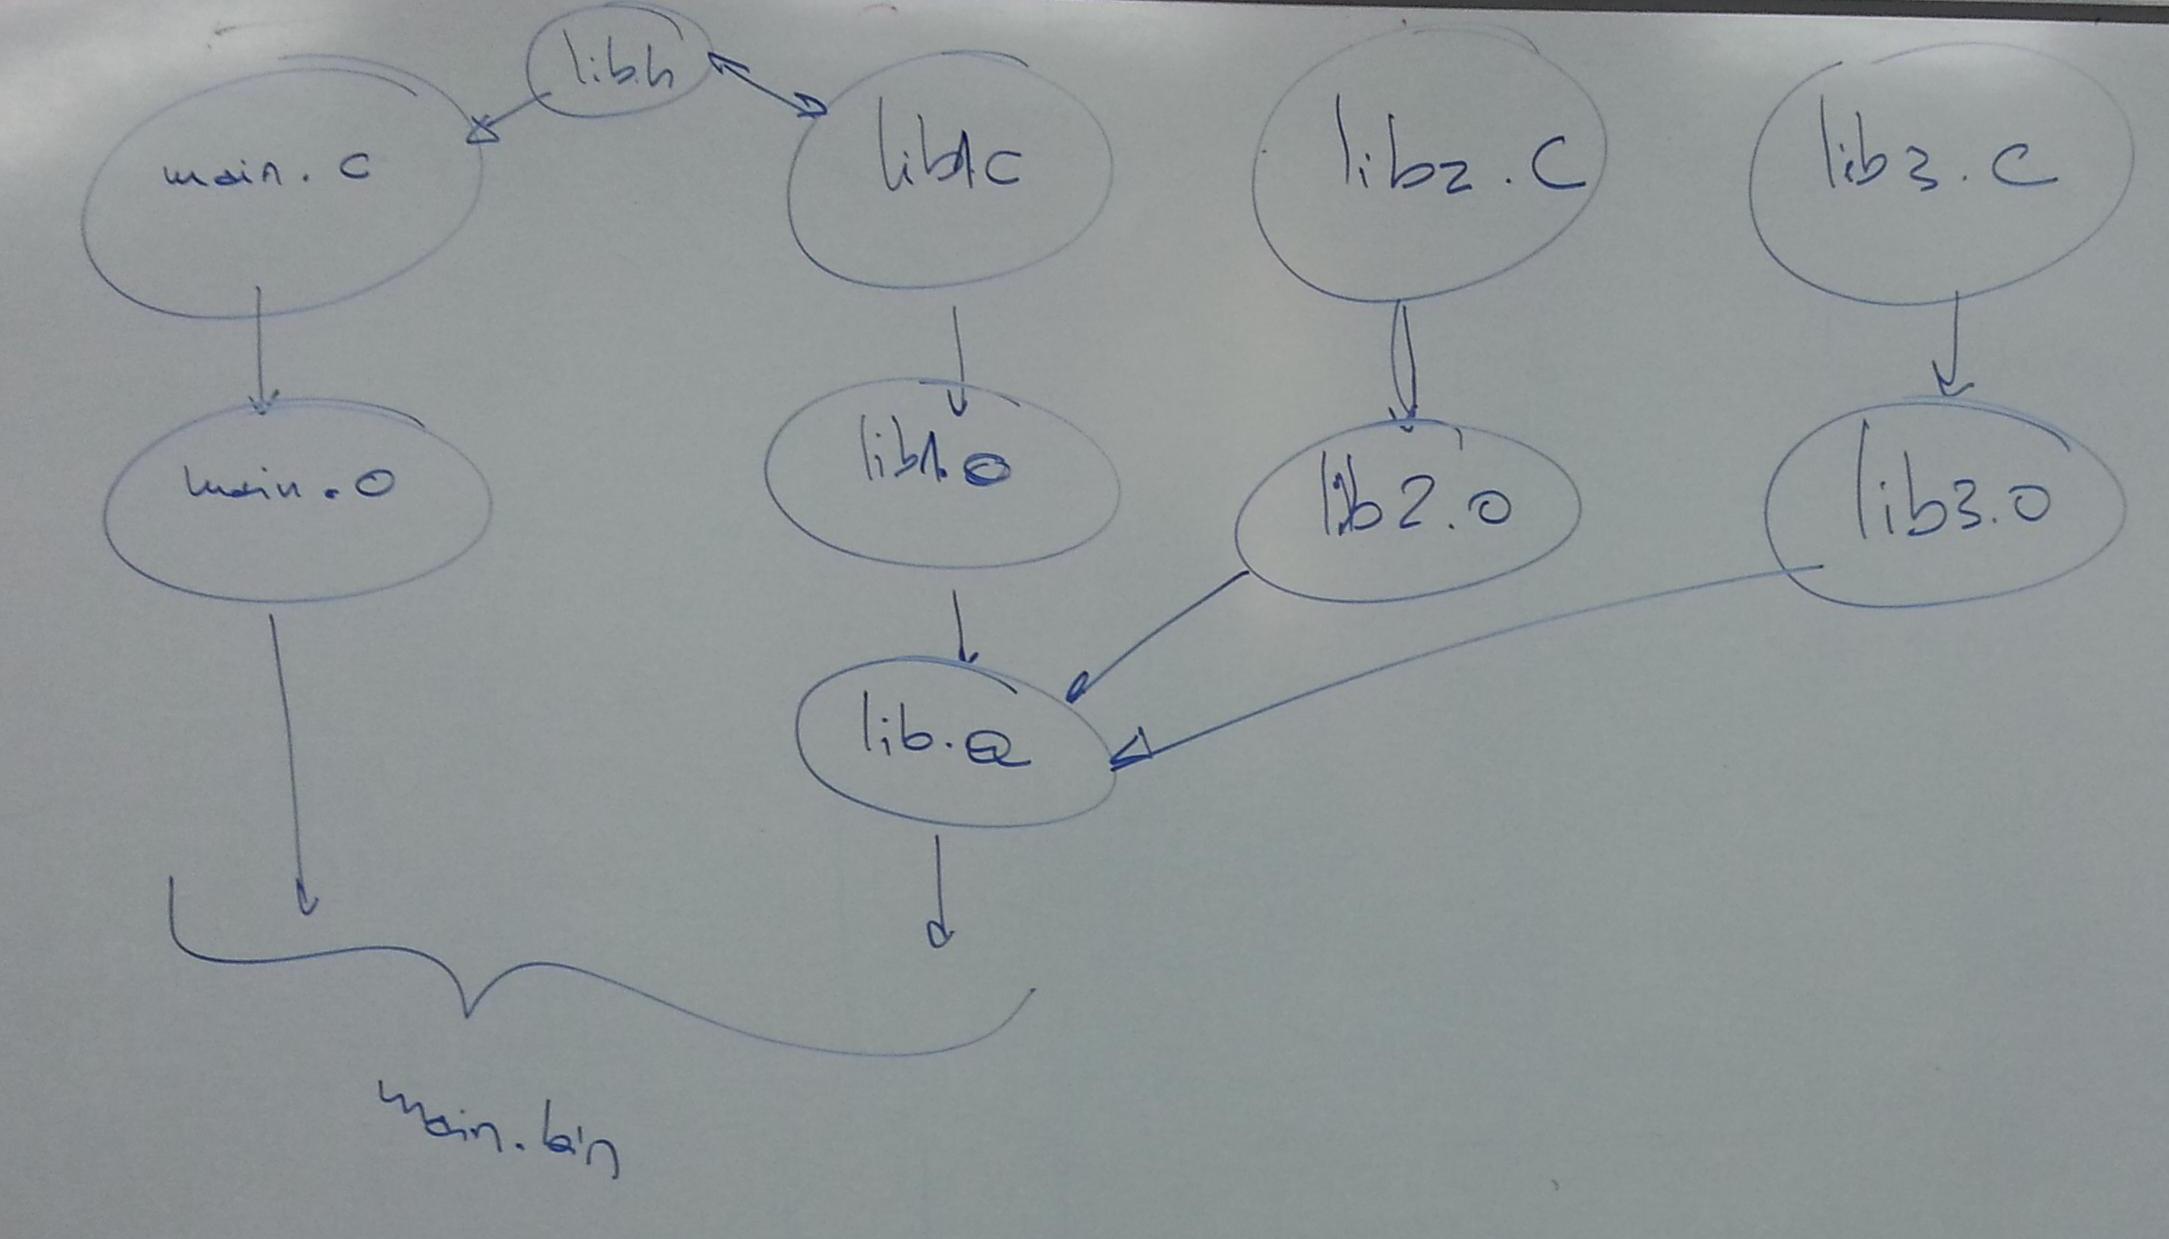 lib.h
main.c
lib1.c
lib2.c
lib3.c
main.o
lib1.o
lib2.o
lib3.o
lib.a
main.bin